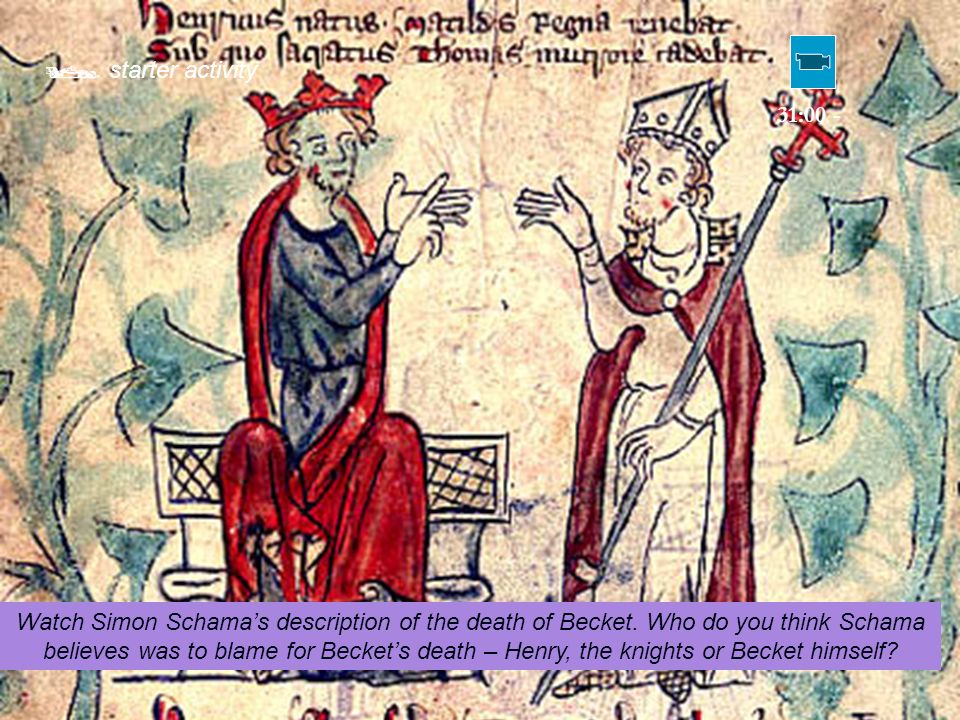 Henricus natus Matildis regna tenebat
Sub quo sacratus Thomas mucrone cadebat.
starter activity
31:00 -
Watch Simon Schama’s description of the death of Becket. Who do you think Schama
believes was to blame for Becket’s death – Henry, the knights or Becket himself?